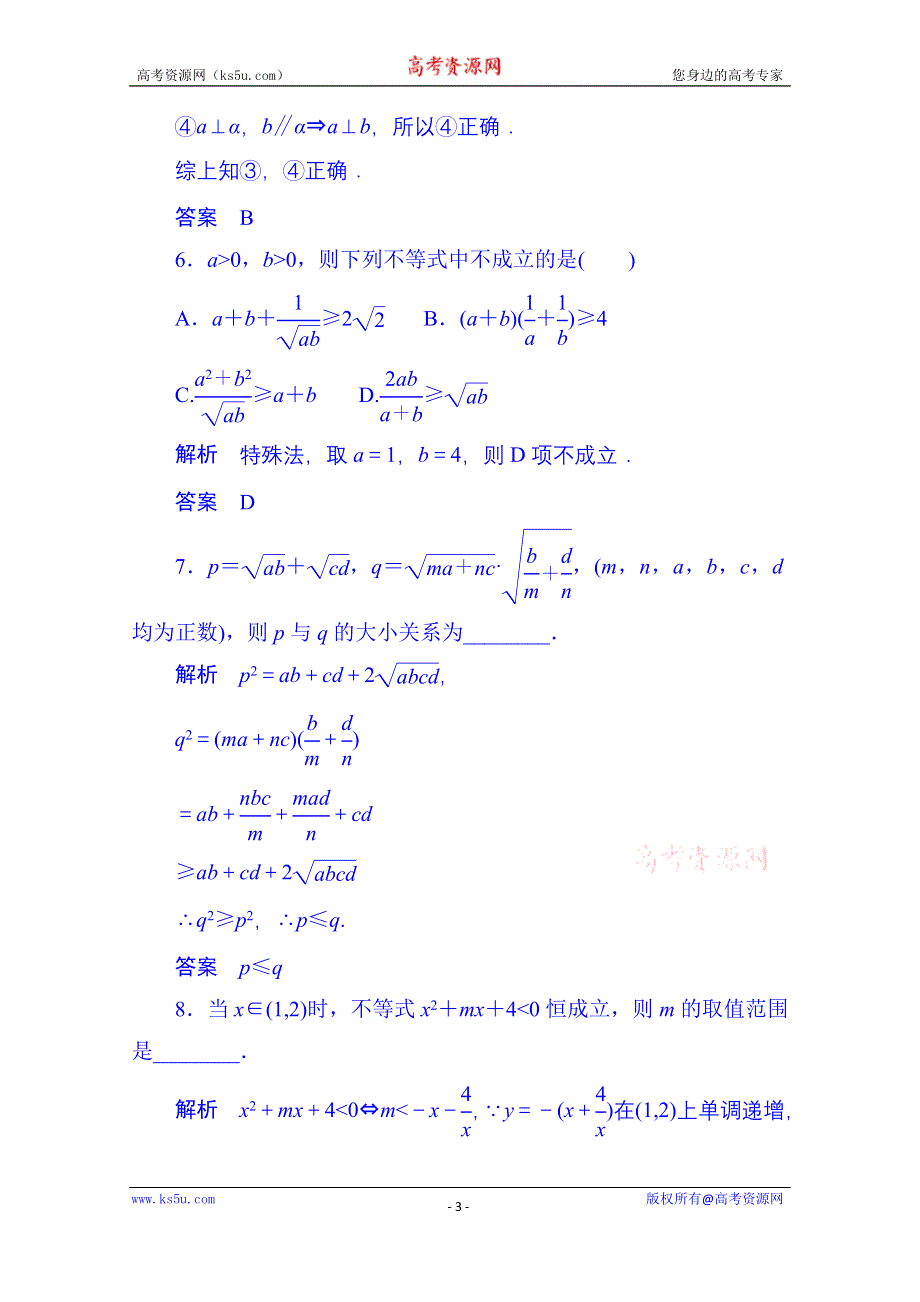 高考资源网（ks5u.com） 高考资源网 您身边的高考专家
④a⊥α，b∥α⇒a⊥b，所以④正确．
综上知③，④正确．
答案 B
6．a>0，b>0，则下列不等式中不成立的是( )
A．a＋b＋\frac{1}{\sqrt{ab}}≥2\sqrt{2} B．(a＋b)(\frac{1}{a}＋\frac{1}{b})≥4
C.\frac{a²＋b²}{\sqrt{ab}}≥a＋b D.\frac{2ab}{a＋b}≥\sqrt{ab}
解析 特殊法，取 a＝1，b＝4，则 D 项不成立．
答案 D
7．p＝\sqrt{ab}＋\sqrt{cd}，q＝\sqrt{ma＋nc}·\sqrt{\frac{b}{m}＋\frac{d}{n}}，(m，n，a，b，c，d
均为正数)，则 p 与 q 的大小关系为________．
解析 p²＝ab＋cd＋2\sqrt{abcd}，
q²＝(ma＋nc)(\frac{b}{m}＋\frac{d}{n})
＝ab＋\frac{nbc}{m}＋\frac{mad}{n}＋cd
≥ab＋cd＋2\sqrt{abcd}
∴q²≥p²，∴p≤q.
答案 p≤q
高考资源网
8．当 x∈(1,2)时，不等式 x²＋mx＋4<0 恒成立，则 m 的取值范围
是________．
解析 x²＋mx＋4<0⇔m<－x－\frac{4}{x}，∵y＝－(x＋\frac{4}{x})在(1,2)上单调递增，
www.ks5u.com - 3 - 版权所有@高考资源网